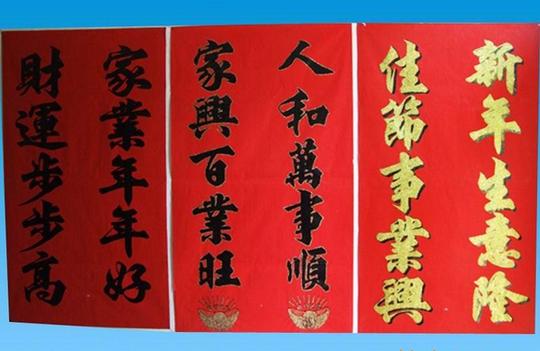 新年生意隆
佳節事業興
人和萬事順
家興百業旺
家業年年好
財運步步高